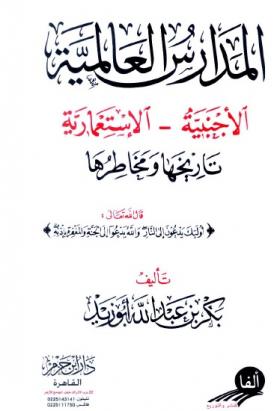 المدارس العالمية
الأجنبية - الإستعمارية
تاريخها ومخاطرها
قال الله تعالى :
﴿ أولئك يدعون إلى النار والله يدعو إلى الجنة والمغفرة بإذنه ﴾
تأليف
بكر بن عبد الله أبو زيد
دار ابن حزم
القاهرة
تليفون : 0225143141
فاكس : 0225111750
ألفا
للنشر والتوزيع